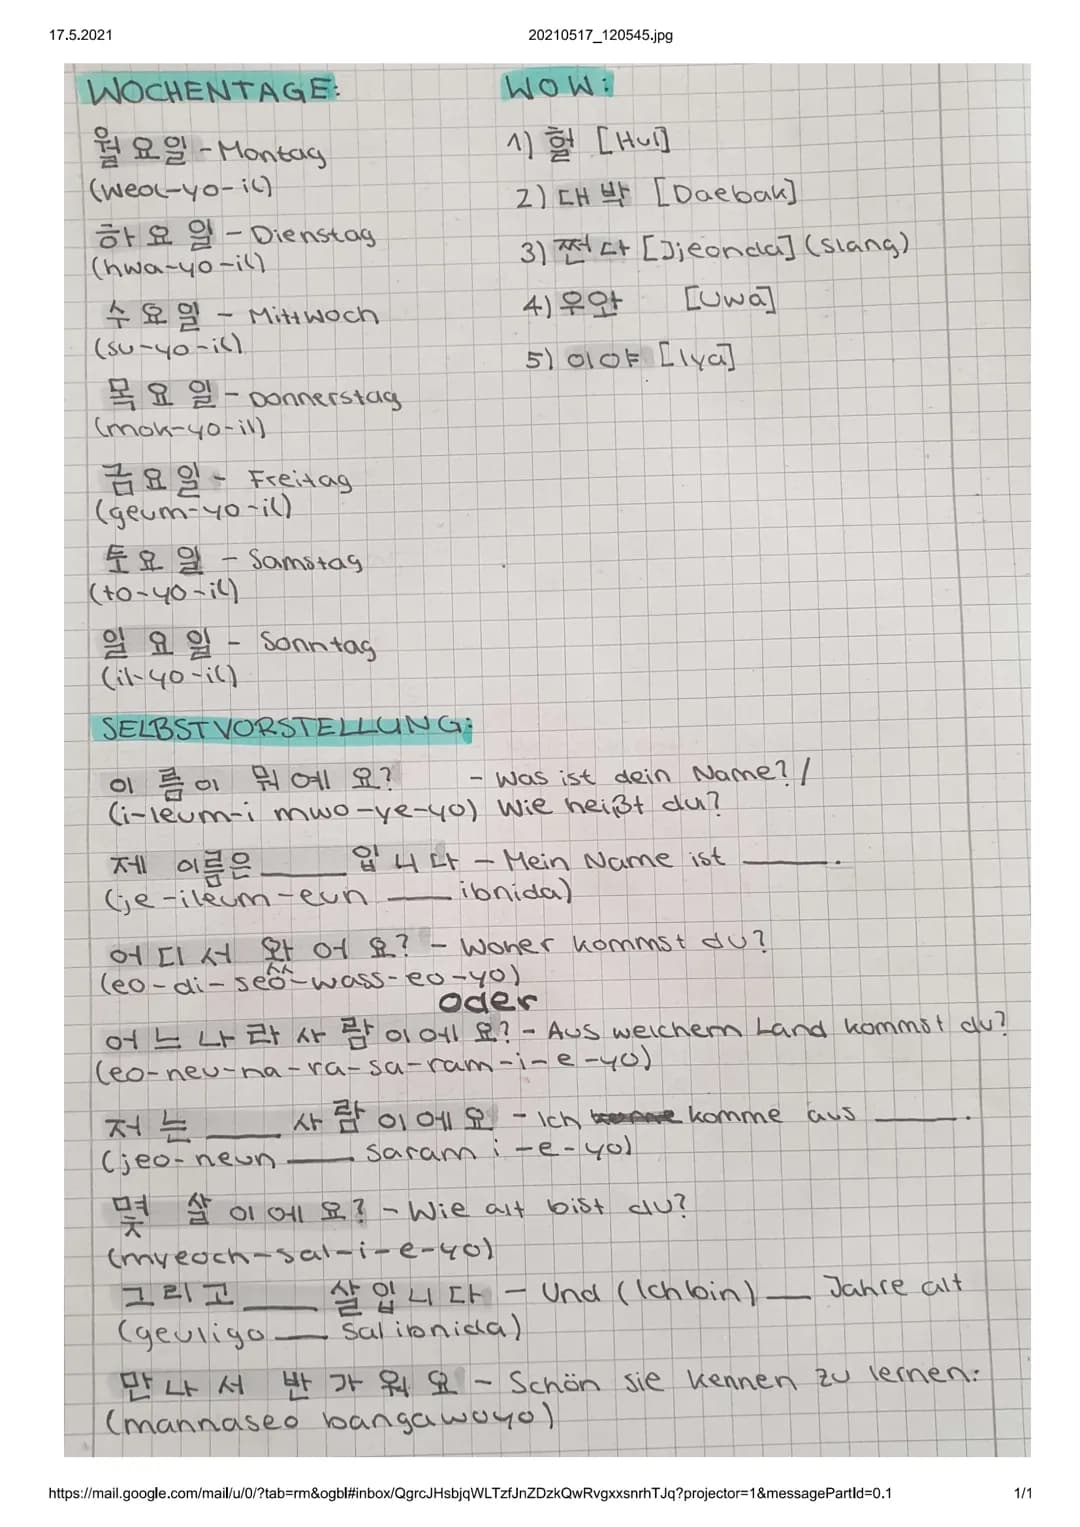 17.5.2021
20210517_120545.jpg
WOCHENTAGE:
월요일 - Montag
(weol-yo-il)
화요일 - Dienstag
(hwa-yo-il)
수요일 - Mittwoch
(su-yo-il)
목요일 - Donnerstag
(mok-yo-il)
금요일 - Freitag
(geum-yo-il)
토요일 - Samstag
(to-yo-il)
일요일 - Sonntag
(il-yo-il)
WOW:
1) 헐 [Hul]
2) 대박 [Daebak]
3) 쩐다 [Jjeonda] (slang)
4) 우와 [Uwa]
5) 이야 [Iya]
SELBSTVORSTELLUNG:
이름이 뭐예요? - Was ist dein Name? /
(i-leum-i mwo-ye-yo) Wie heißt du?
제 이름은 ____ 입니다 - Mein Name ist ____.
(je-ileum-eun ____ ibnida)
어디서 왔어요? - Woher kommst du?
(eo-di-seo-wass-eo-yo)
oder
어느 나라 사람이에요? - Aus welchem Land kommst du?
(eo-neu-na-ra-sa-ram-i-e-yo)
저는 ____ 사람이에요 - Ich komme aus ____.
(jeo-neun ____ saram i-e-yo)
몇 살이에요? - Wie alt bist du?
(myeoch-sal-i-e-yo)
그리고 ____ 살입니다 - Und (Ich bin) __ Jahre alt
(geuligo ____ salibnida)
만나서 반가워요 - Schön sie kennen zu lernen.
(mannaseo bangawoyo)
https://mail.google.com/mail/u/0/?tab=rm&ogbl#inbox/QgrcJHsbjqWLTzfJnZDzkQwRvgxxsnrhTJq?projector=1&messagePartId=0.1
1/1